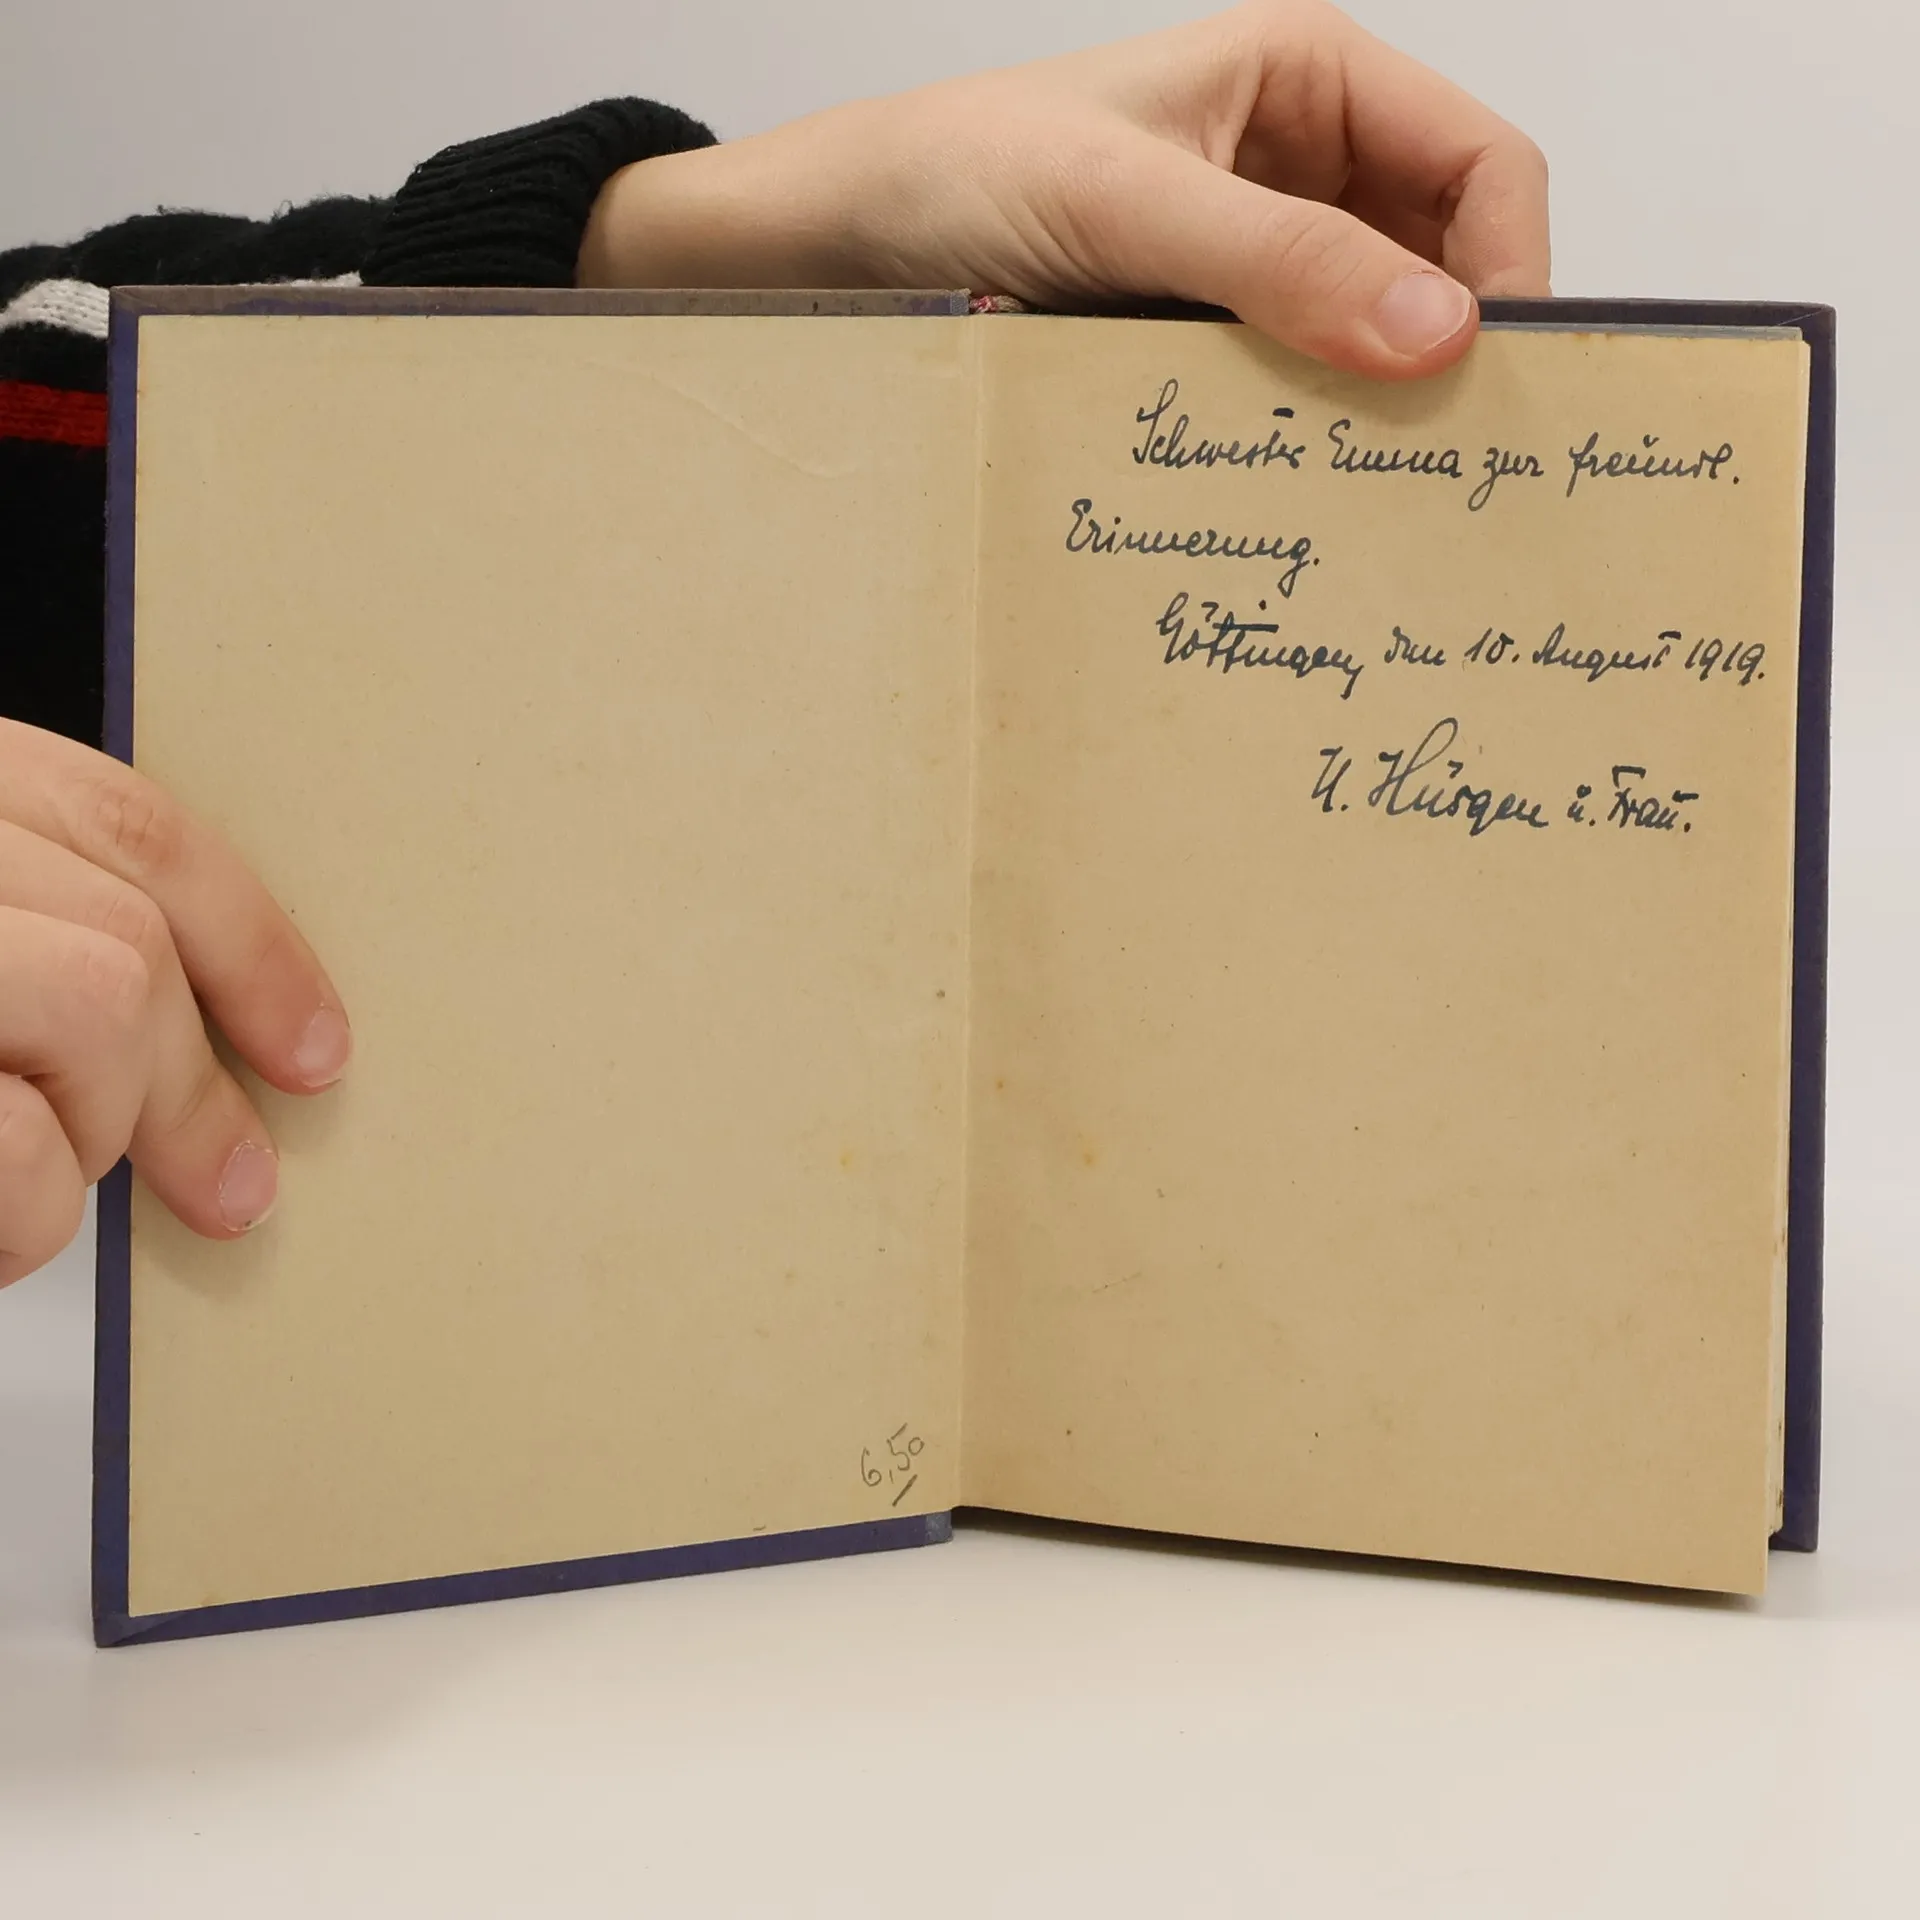 6,50
Schwester Emma zur freundl.
Erinnerung.
Göttingen, den 10. August 1919.
H. Hüsgen u. Frau.